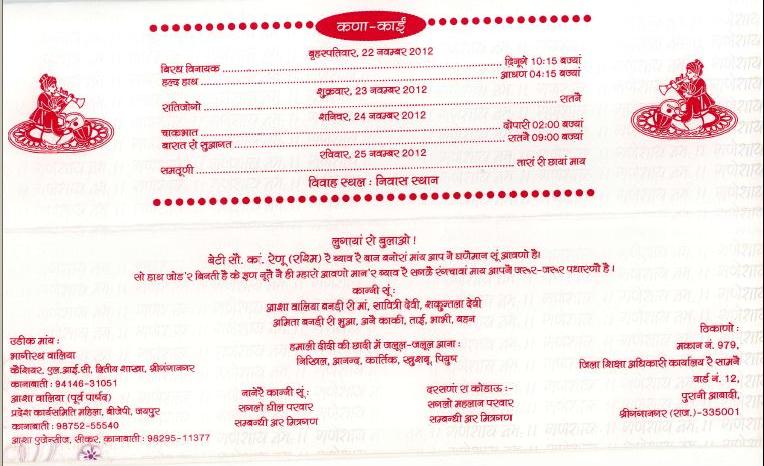 कणा-काईं
बृहस्पतिवार, 22 नवम्बर 2012
बिरध विनायक ........ दिनूगे 10:15 बज्यां
हल्द हाथ ........ आथण 04:15 बज्यां
शुक्रवार, 23 नवम्बर 2012
रातिजोगो ........ रातनै
शनिवर, 24 नवम्बर 2012
चाकभात ........ दोपारी 02:00 बज्यां
बारात रो सुआगत ........ रातनै 09:00 बज्यां
रविवार, 25 नवम्बर 2012
समठूणी ........ तारां री छायां माय
विवाह स्थल : निवास स्थान
लुगायां रो बुलाओ !
बेटी सौ. कां. रेणू (रश्मि) रै ब्याव रै बान बनोरां मांय आप नै घणैमान सूं आवणो है।
सो हाथ जोड'र बिनती है कै इण नूतै नै ही म्हारो आवणो मान'र ब्याव रै सगळै रंगचावां माय आपनै जरूर-जरूर पधारणो है।
कान्नी सूं :
आशा वालिया बनड़ी री मां, सावित्री देवी, शकुन्तला देवी
अमिता बनड़ी री भुआ, अनै काकी, ताई, भाभी, बहन
हमाली दीदी की छादी में जलूल-जलूल आना :
निखिल, आनन्द, कार्तिक, खुशबू, पियुष
उडीक मांय :
भागीरथ वालिया
कैशियर, एल.आई.सी. द्वितीय शाखा, श्रीगंगानगर
कानाबाती : 94146-31051
आशा वालिया (पूर्व पार्षद)
प्रदेश कार्यसमिति महिला, बीजेपी, जयपुर
कानाबाती : 98752-55540
आशा एजेन्सीज, सीकर, कानाबाती : 98295-11377
नानेरै कान्नी सूं :
सगलो घील परवार
सम्बन्धी अर मित्रगण
दरसणां रा कोडाऊ :-
सगलो महलान परवार
सम्बन्धी अर मित्रगण
ठिकाणो :
मकान नं. 979,
जिला शिक्षा अधिकारी कार्यालय रै सामनै
वार्ड नं. 12,
पुरानी आबादी,
श्रीगंगानगर (राज.)-335001